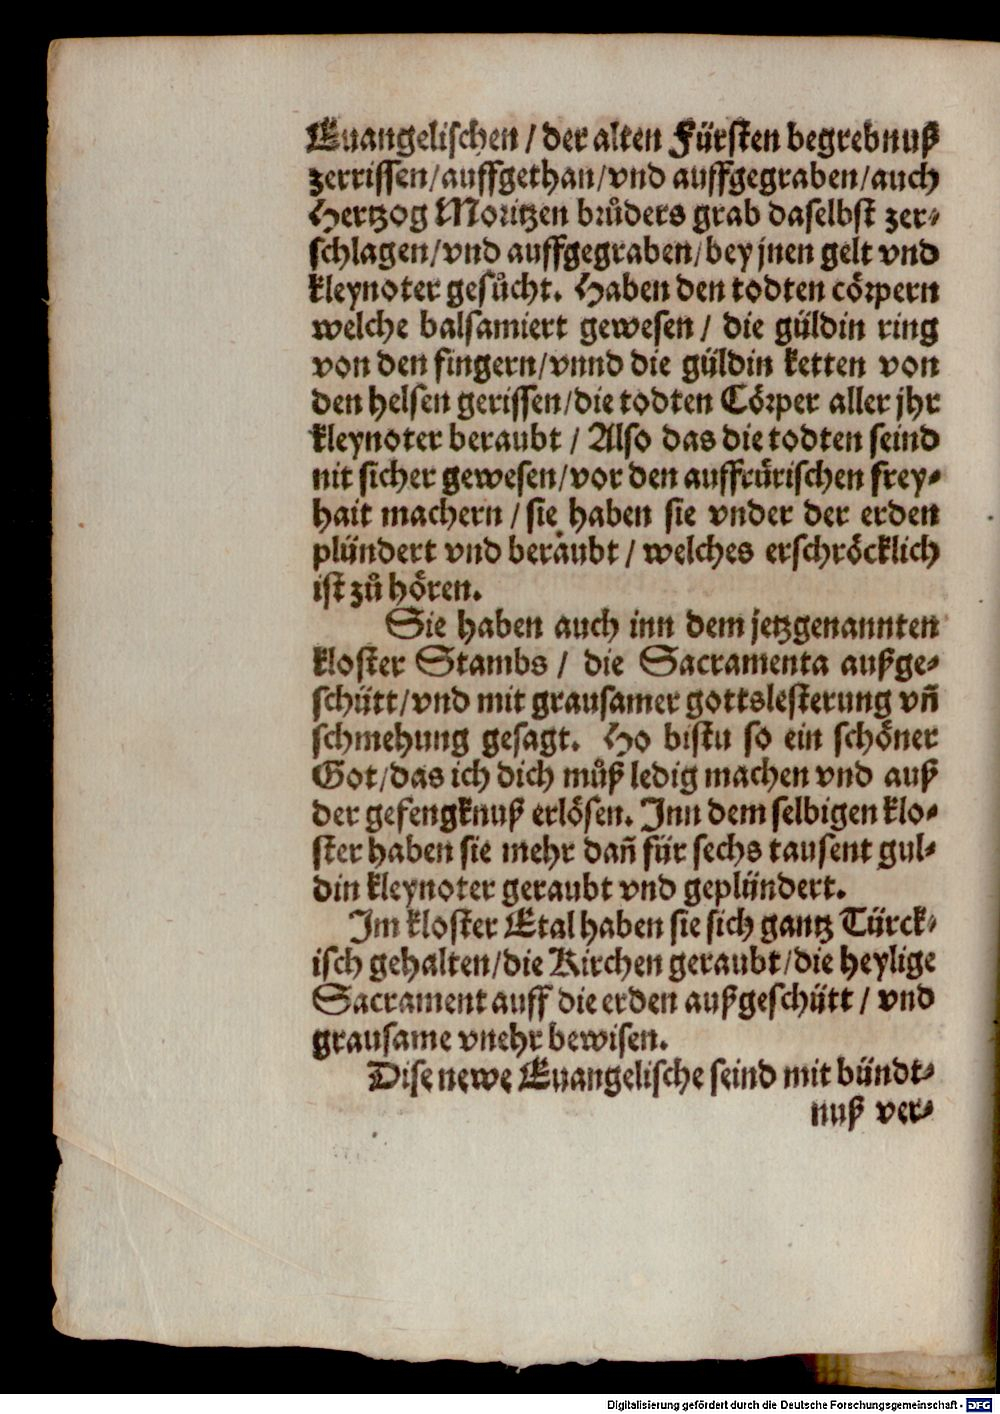 Euangelischen / der alten Fürsten begrebnuß
zerrissen/auffgethan/vnd auffgegraben/auch
Hertzog Moritzen brůders grab daselbst zer-
schlagen/vnd auffgegraben/bey jnen gelt vnd
kleynoter gesůcht. Haben den todten cörpern
welche balsamiert gewesen / die güldin ring
von den fingern/vnnd die güldin ketten von
den helsen gerissen/die todten Cörper aller jhr
kleynoter beraubt / Also das die todten seind
nit sicher gewesen/vor den auffrürischen frey-
hait machern / sie haben sie vnder der erden
plündert vnd beraubt / welches erschröcklich
ist zů hören.
Sie haben auch inn dem jetzgenannten
kloster Stambs / die Sacramenta außge-
schütt/vnd mit grausamer gottslesterung vñ
schmehung gesagt. Ho bistu so ein schöner
Got/das ich dich můß ledig machen vnd auß
der gefengknuß erlösen. Inn dem selbigen klo-
ster haben sie mehr dañ für sechs tausent gul-
din kleynoter geraubt vnd geplündert.
Im kloster Etal haben sie sich gantz Türck-
isch gehalten/die Kirchen geraubt/die heylige
Sacrament auff die erden außgeschütt / vnd
grausame vnehr bewisen.
Dise newe Euangelische seind mit bündt-
nuß ver-
Digitalisierung gefördert durch die Deutsche Forschungsgemeinschaft - DFG